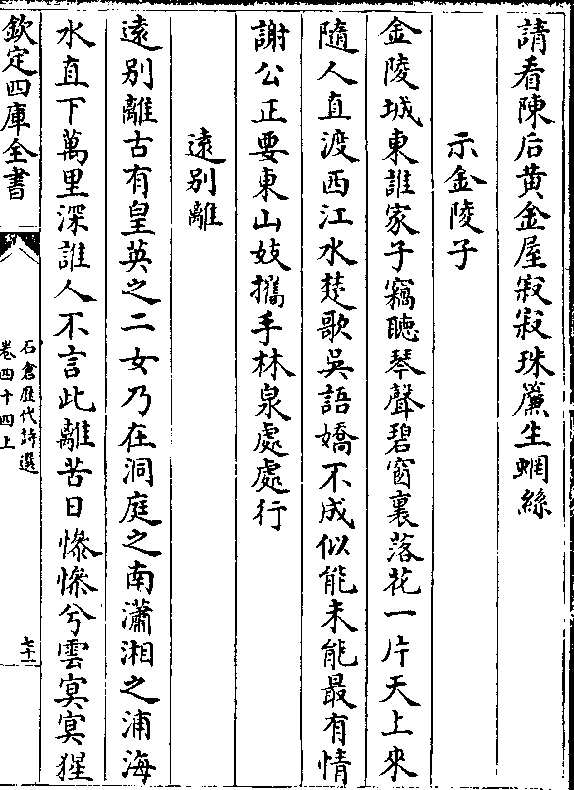 請看陳后黃金屋寂寂珠簾生網絲
示金陵子
金陵城東誰家子竊聽琴聲碧窗裏落花一片天上來
隨人直渡西江水楚歌吳語嬌不成似能未能最有情
謝公正要東山妓攜手林泉處處行
遠別離
遠別離古有皇英之二女乃在洞庭之南瀟湘之浦海
水直下萬里深誰人不言此離苦日慘慘兮雲冥冥猩
欽定四庫全書
石倉歷代詩選
卷四十四上